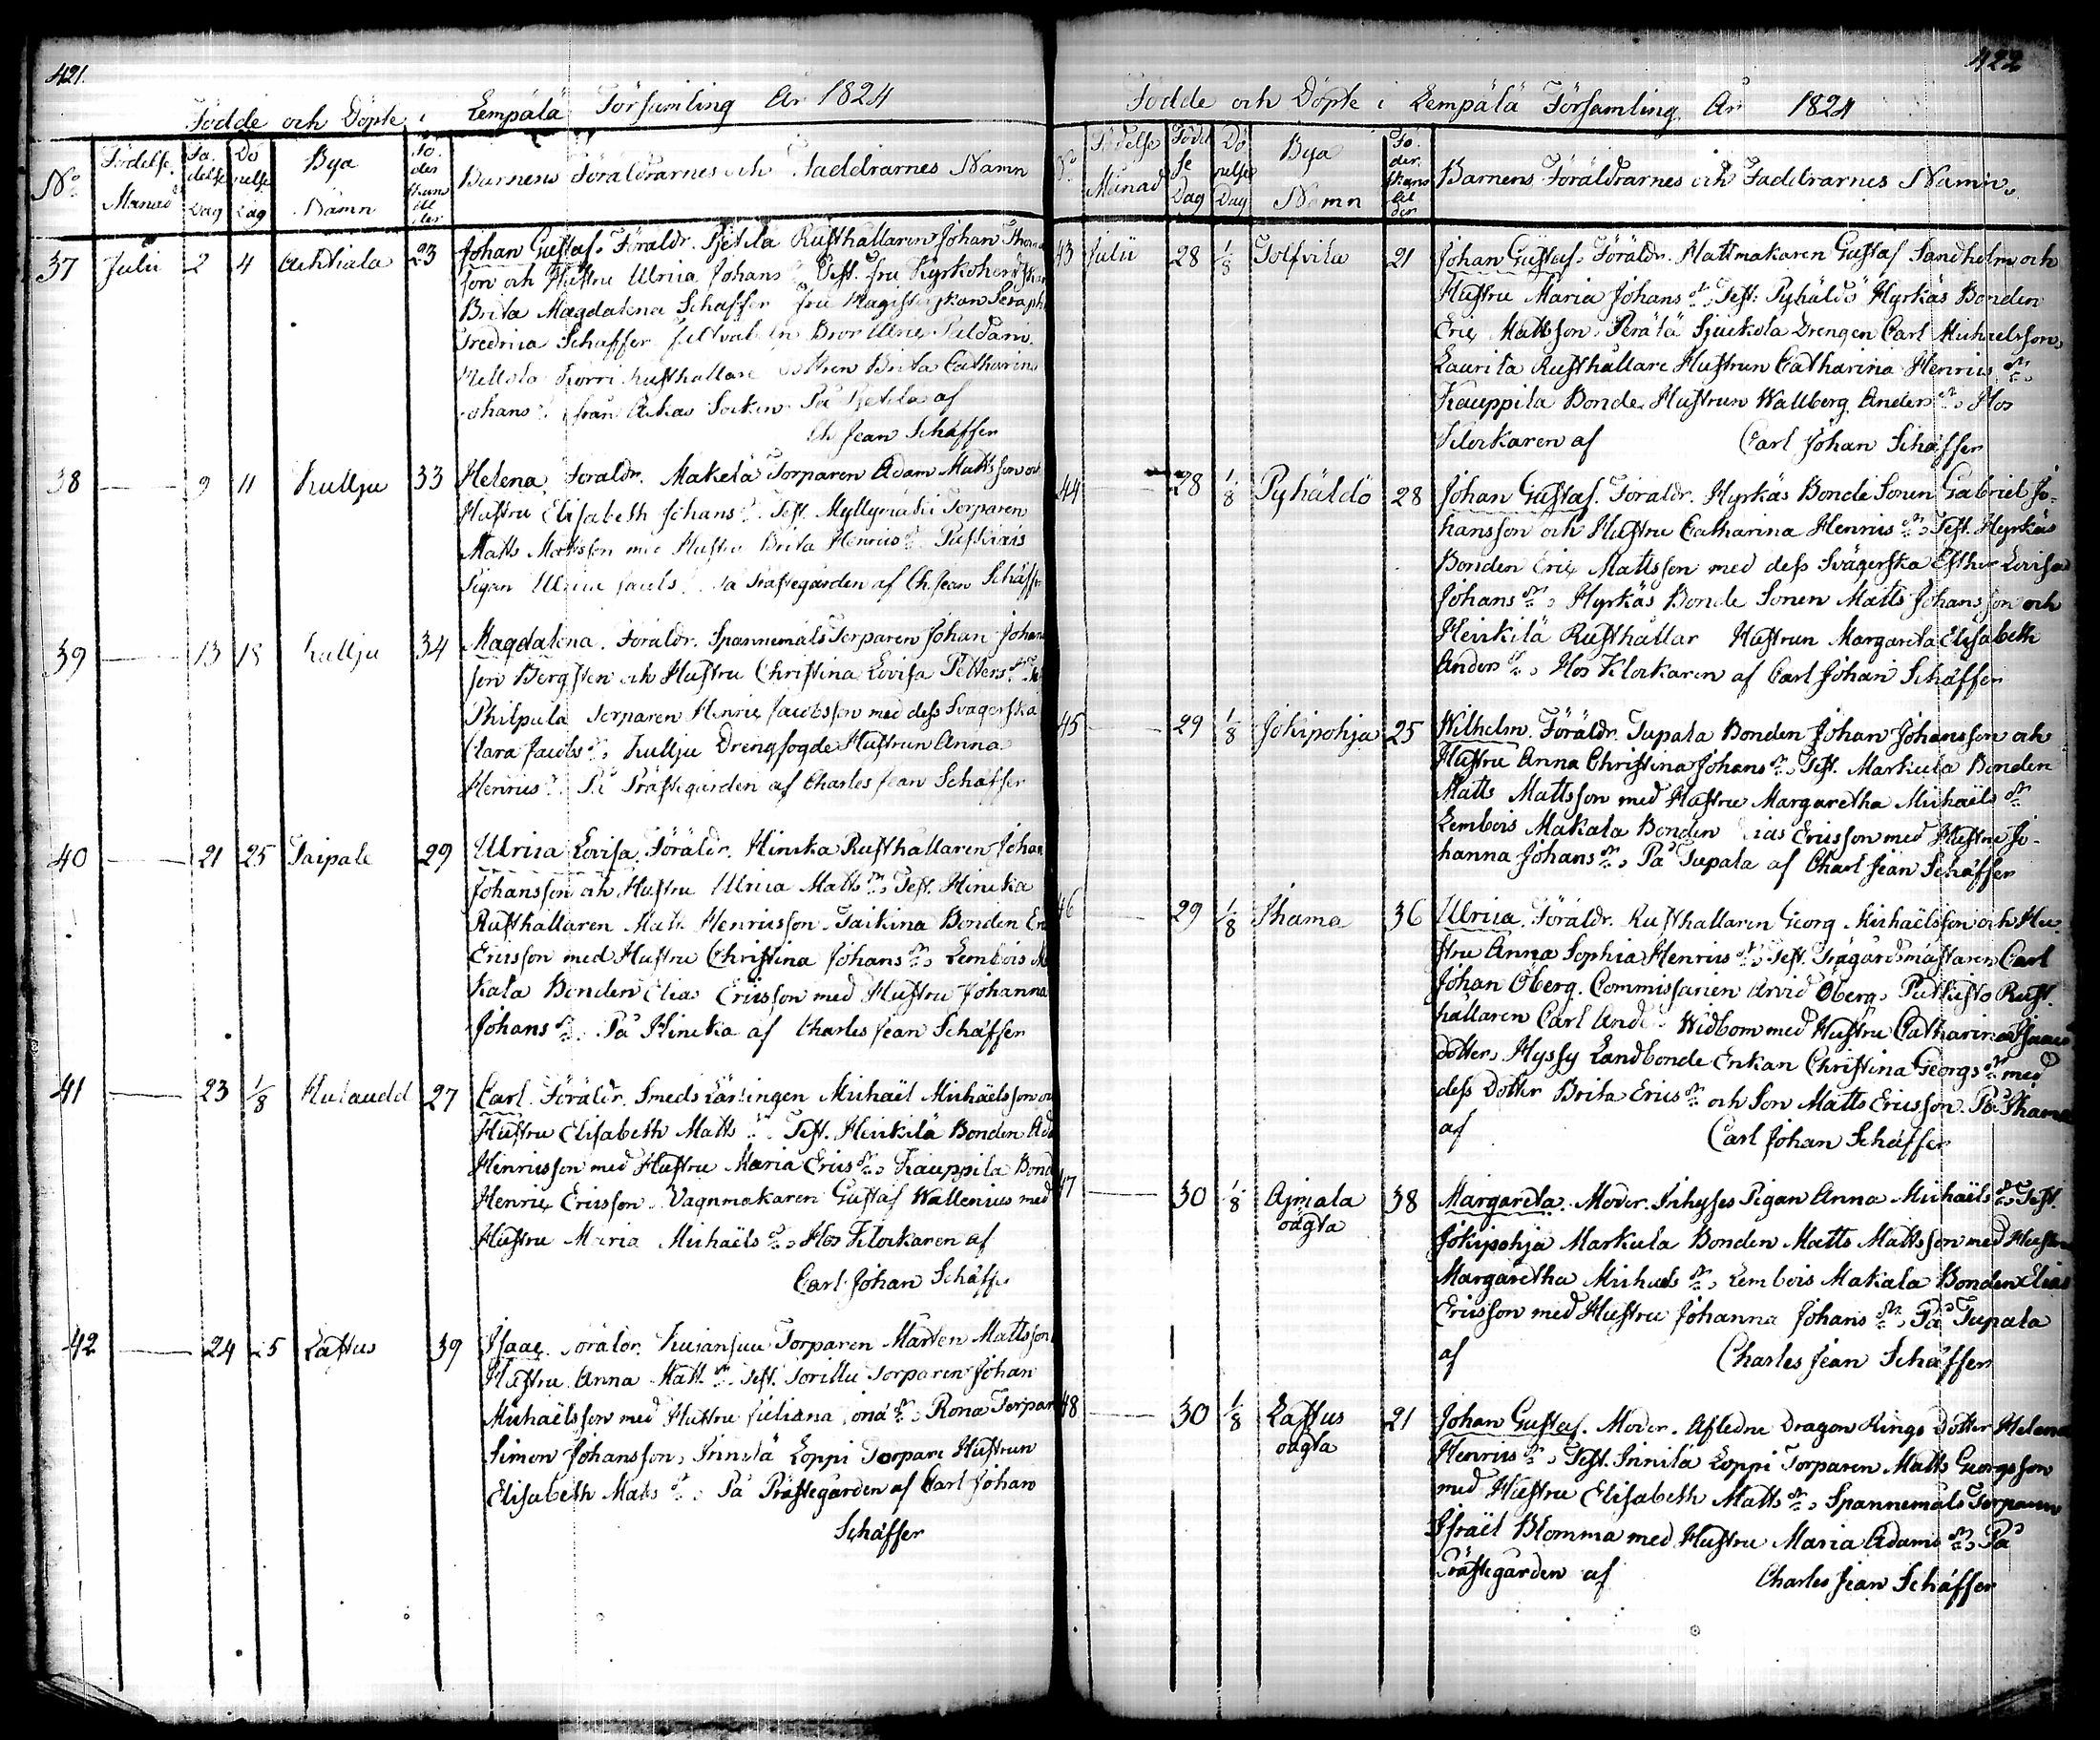 421.
Födde och Döpte i Lempälä Församling År 1824
No. Födelse Månad Födelse Dag Döpelse Dag Bya Namn Föderskans Ålder Barnens Föräldrarnes och Faddrarnes Namn
37 Julii 2 4 Ahtiala 23 Johan Gustaf. Föräldr. Pjetila Rusthållaren Johan
son och Hustru Ulrica Johans Test. fru Kyrkoherd
Brita Magdalena Schæffer fru
Fredrica Schæffer
Rusthållare Hustrun Brita Catharina
Johans från Ackas Socken. På Pjetila af
Ch. Jean Schæffer
38 — 9 11 Kullju 33 Helena. Föräldr. Makelä Torparen Adam Mattsson och
Hustru Elisabeth Johans dr. Test. Myllymäki Torparen
Matts Mattsson med Hustru Brita Henrics dr.
Pigan Ulrica På Prästegården af Ch. Jean Schæffer
39 — 13 18 Kullju 34 Magdalena. Föräldr. Spannemåls Torparen Johan Johans
son Bergsten och Hustru Christina Lovisa Petters dr.
Philpula Torparen Henric Jacobsson med dess Svägerska
Clara Jacobs dr., Kullju Drengfogde Hustrun Anna
Henrics dr. På Prästegården af Charles Jean Schæffer
40 — 21 25 Taipale 29 Ulrica Lovisa. Föräldr. Hincka Rusthållaren Johan
Johansson och Hustru Ulrica Matts dr., Test. Hincka
Rusthållaren Matts Henricsson. Taikina Bonden
Ericsson med Hustru Christina Johans dr., Lembois
kala Bonden Elias Ericsson med Hustru Johanna
Johans dr. På Hincka af Charles Jean Schæffer
41 — 23 1/8 27 Carl. Föräldr. Smeds Lärlingen Michaël Michaëlsson och
Hustru Elisabeth Matts dr. Test. Heickilä Bonden
Henricsson med Hustru Maria Erics dr., Kauppila Bond
Henric Ericsson. Vagnmakaren Gustaf Wallenius med
Hustru Maria Michaëls dr., Hos Klockaren af
Carl Johan Schæffer
42 — 24 25 Lastus 39 Isaac. Föräldr. Kuiansuu Torparen Mårten Mattsson
Hustru Anna Matts dr. Test. Torparen Johan
Michaëlsson med Hustru Juliana dr., Rona Torpar
Simon Johansson, Innilä Loppi Torpare Hustrun
Elisabeth Matts dr., På Prästegården af Carl Johan
Schæffer
422
Födde och Döpte i Lempälä Församling År 1824
No. Födelse Månad Födelse Dag Döpelse Dag Bya Namn Föderskans Ålder Barnens Föräldrarnes och Faddrarnes Namn
43 Julii 28 1/8 Tolfvila 21 Johan Gustaf. Föräldr. Hattmakaren Gustaf Sandholm och
Hustru Maria Johans dr., Test: Pyhäldö Hyrkäs Bonden
Eric Mattsson. Perälä Sjuckola Drengen Carl Michaelsson,
Laurila Rusthållare Hustrun Catharina Henrics dr.,
Kauppila Bonde Hustrun Wallberg Anders dr., Hos
Klockaren af Carl Johan Schæffer
44 — 28 1/8 Pyhäldö 28 Johan Gustaf. Föräldr. Hyrkäs Bonde Sonen Gabriel Jo-
hansson och Hustru Catharina Henrics dr., Test. Hyrkäs
Bonden Eric Mattsson med dess Svägerska Esther Lovisa
Johans dr., Hyrkäs Bonde Sonen Matts Johansson och
Heickilä Rusthållar Hustrun Margareta Elisabeth
Anders dr., Hos Klockaren af Carl Johan Schæffer
45 — 29 1/8 Jokipohja 25 Wilhelm. Föräldr. Tupala Bonden Johan Johansson och
Hustru Anna Christina Johans dr., Test. Markula Bonden
Matts Mattsson med Hustru Margaretha Michaëls dr.
Lembois Makala Bonden Elias Ericsson med Hustru Jo-
hanna Johans dr., På Tupala af Charl Jean Schæffer
46 — 29 1/8 36 Ulrica. Föräldr. Rusthållaren Georg Michaëlsson och Hu-
stru Anna Sophia Henrics dr., Test. Trägårdsmästaren Carl
Johan Öberg. Commissarien Arvid Öberg, Rust.
hållaren Carl And Widbom med Hustru Catharina Isaacs
dotter, Hyssy Landbonde Enkan Christina Georgs dr. med
dess Dotter Brita Erics dr. och Son Matts Ericsson. På
af Carl Johan Schæffer
47 — 30 1/8 Ajmala oägta 38 Margareta. Moder. Inhyses Pigan Anna Michaëls dr., Test.
Jokipohja Markula Bonden Matts Mattsson med Hustru
Margaretha Michaels dr., Lembois Makala Bonden Elias
Ericsson med Hustru Johanna Johans dr., På Tupala
af Charles Jean Schæffer
48 — 30 1/8 Lastus oägta 21 Johan Gustaf. Moder. Afledne Dragon Rings Dotter Helena
Henrics dr., Test. Innilä Loppi Torparen Matts Georgsson
med Hustru Elisabeth Matts dr., Spannemåls Torparen
Israël Blomma med Hustru Maria Adams dr., På
Prästegården af Charles Jean Schæffer